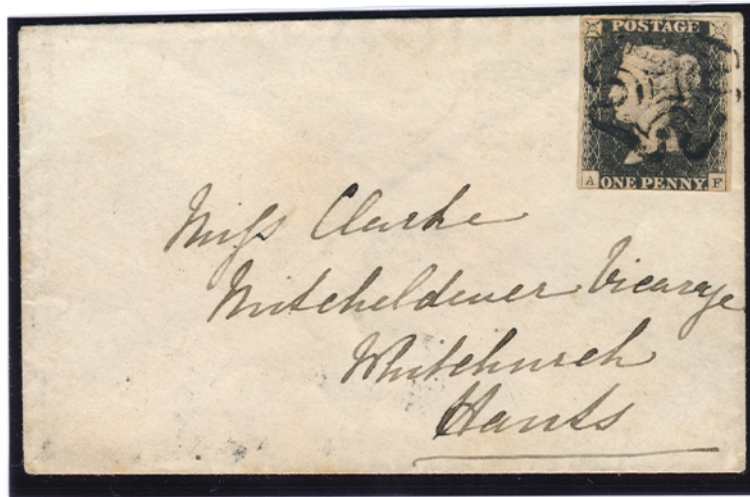 POSTAGE
A ONE PENNY. F
Miss Clarke
Mitcheldever Vicarage
Whitchurch
Hants